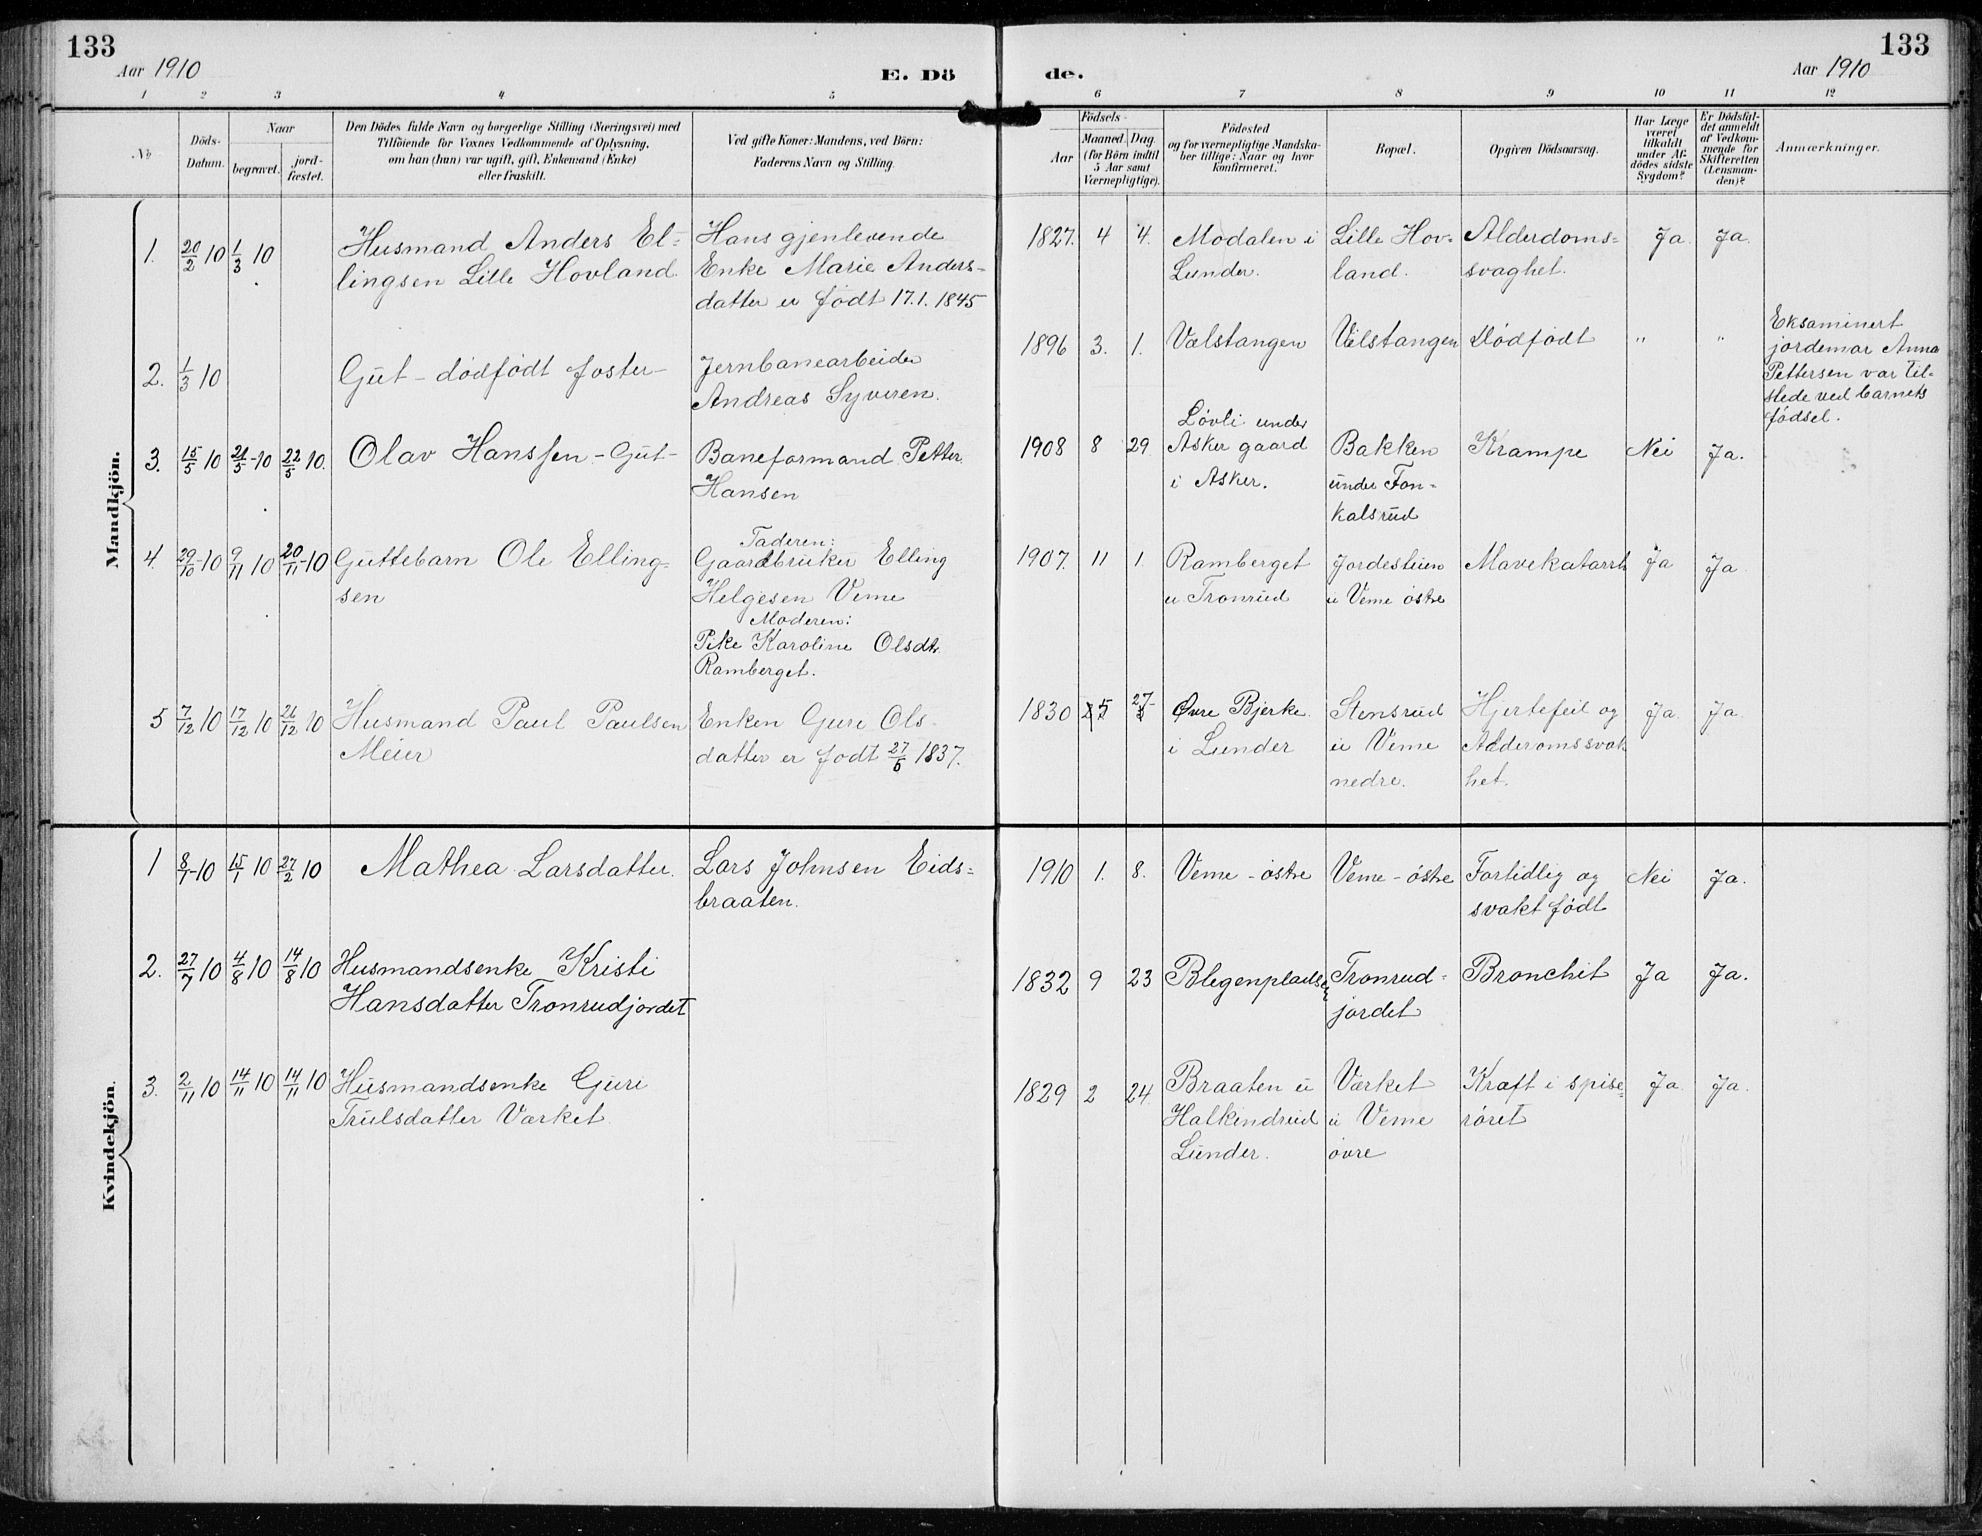 133
Aar 1910
E. Dö
1 2 3 4 5
No
Döds-
Datum.
Naar
begravet.
jord-
fæstet.
Den Dödes fulde Navn og borgerlige Stilling (Næringsvei) med
Tilföiende for Voxnes Vedkommende af Oplysning,
om han (hun) var ugift, gift, Enkemand (Enke)
eller fraskilt.
Ved gifte Koner: Mandens, ved Börn:
Faderens Navn og Stilling.
Mandkjön.
1. 20/2 10 1/3 10
Husmand Anders El-
lingsen Lille Hovland
Hans gjenlevende
Enke Marie Anders-
datter er født 17.1.1845
2. 1/3 10
Gut - dödfödt foster -
Jernbanearbeider
Andreas Syveren.
3. 15/5 10 21/5-10 22/5 10.
Olav Hanssen - Gut -
Baneformand Petter
Hansen
4. 29/10-10 9/11 10 20/11-10
Guttebarn Ole Elling-
sen
Faderen:
Gaardbruker Elling
Helgesen Veme
Moderen:
Pike Karoline Olsdtr.
Ramberget.
5 7/12 10 17/12 10 26/12 10
Husmand Paul Paulsen
Meier
Enken Guri Ols-
datter er født 27/6 1837.
Kvindekjön.
1 8/1-10 15/1 10 27/2 10
Mathea Larsdatter.
Lars Johnsen Eids-
braaten.
2. 27/7 10 4/8 10 14/8 10
Husmandsenke Kristi
Hansdatter Tronrudjordet
3. 2/11 10 14/11 10 14/11 10
Husmandsenke Guri
Trulsdatter Værket.
133
Aar 1910
de.
6 7 8 9 10 11 12
Födsels-
Aar
Maaned. Dag.
(for Börn indtil
5 Aar samt
Værnepligtige).
Födested
og for værnepligtige Mandska-
ber tillige: Naar og hvor
konfirmeret.
Bopæl.
Opgiven Dödsaarsag.
Har Læge
været
tilkaldt
under Af-
dödes sidste
Sygdom?
Er Dödsfal-
det anmeldt
af Vedkom-
mende for
Skifteretten
(Lensman-
den)?
Anmærkninger.
1827. 4 4.
Modalen i
Lunder.
Lille Hov-
land.
Alderdoms-
svaghet.
Ja Ja
1896 3. 1.
Vælstangen
Vælstangen
Dödfödt
" "
Eksaminert
jordemor Anna
Pettersen var til-
stede ved barnets
fødsel.
1908 8 29
Løvli under
Asker gaard
i Asker.
Bakken
under Fon-
kalsrud
Krampe
Nei Ja.
1907. 11 1
Ramberget
u. Tronrud
Jordesteien
u Veme østre
Mavekatarrh
Ja Ja
1830 5 27
Øvre Bjerke
i Lunder
Stensrud
u Veme
nedre.
Hjertefeil og
Alderomssvak
het.
Ja Ja
1910 1. 8.
Veme - østre
Veme - østre
Fortidlig og
svakt født
Nei Ja.
1832 9 23
Blegenpladsen
Tronrud-
jordet
Bronchit
Ja Ja.
1829 2 24.
Braaten u
Halkindrud
Lunder.
Værket
u Veme
øvre
Kræft i spise-
røret
Ja Ja.